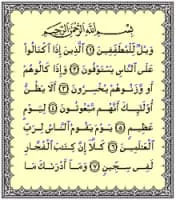 بِسْمِ اللَّهِ الرَّحْمَٰنِ الرَّحِيمِ
وَيْلٌ لِّلْمُطَفِّفِينَ ١ الَّذِينَ إِذَا اكْتَالُوا
عَلَى النَّاسِ يَسْتَوْفُونَ ٢ وَإِذَا كَالُوهُمْ
أَو وَّزَنُوهُمْ يُخْسِرُونَ ٣ أَلَا يَظُنُّ
أُولَٰئِكَ أَنَّهُم مَّبْعُوثُونَ ٤ لِيَوْمٍ
عَظِيمٍ ٥ يَوْمَ يَقُومُ النَّاسُ لِرَبِّ
الْعَالَمِينَ ٦ كَلَّا إِنَّ كِتَابَ الْفُجَّارِ
لَفِي سِجِّينٍ ٧ وَمَا أَدْرَاكَ مَا